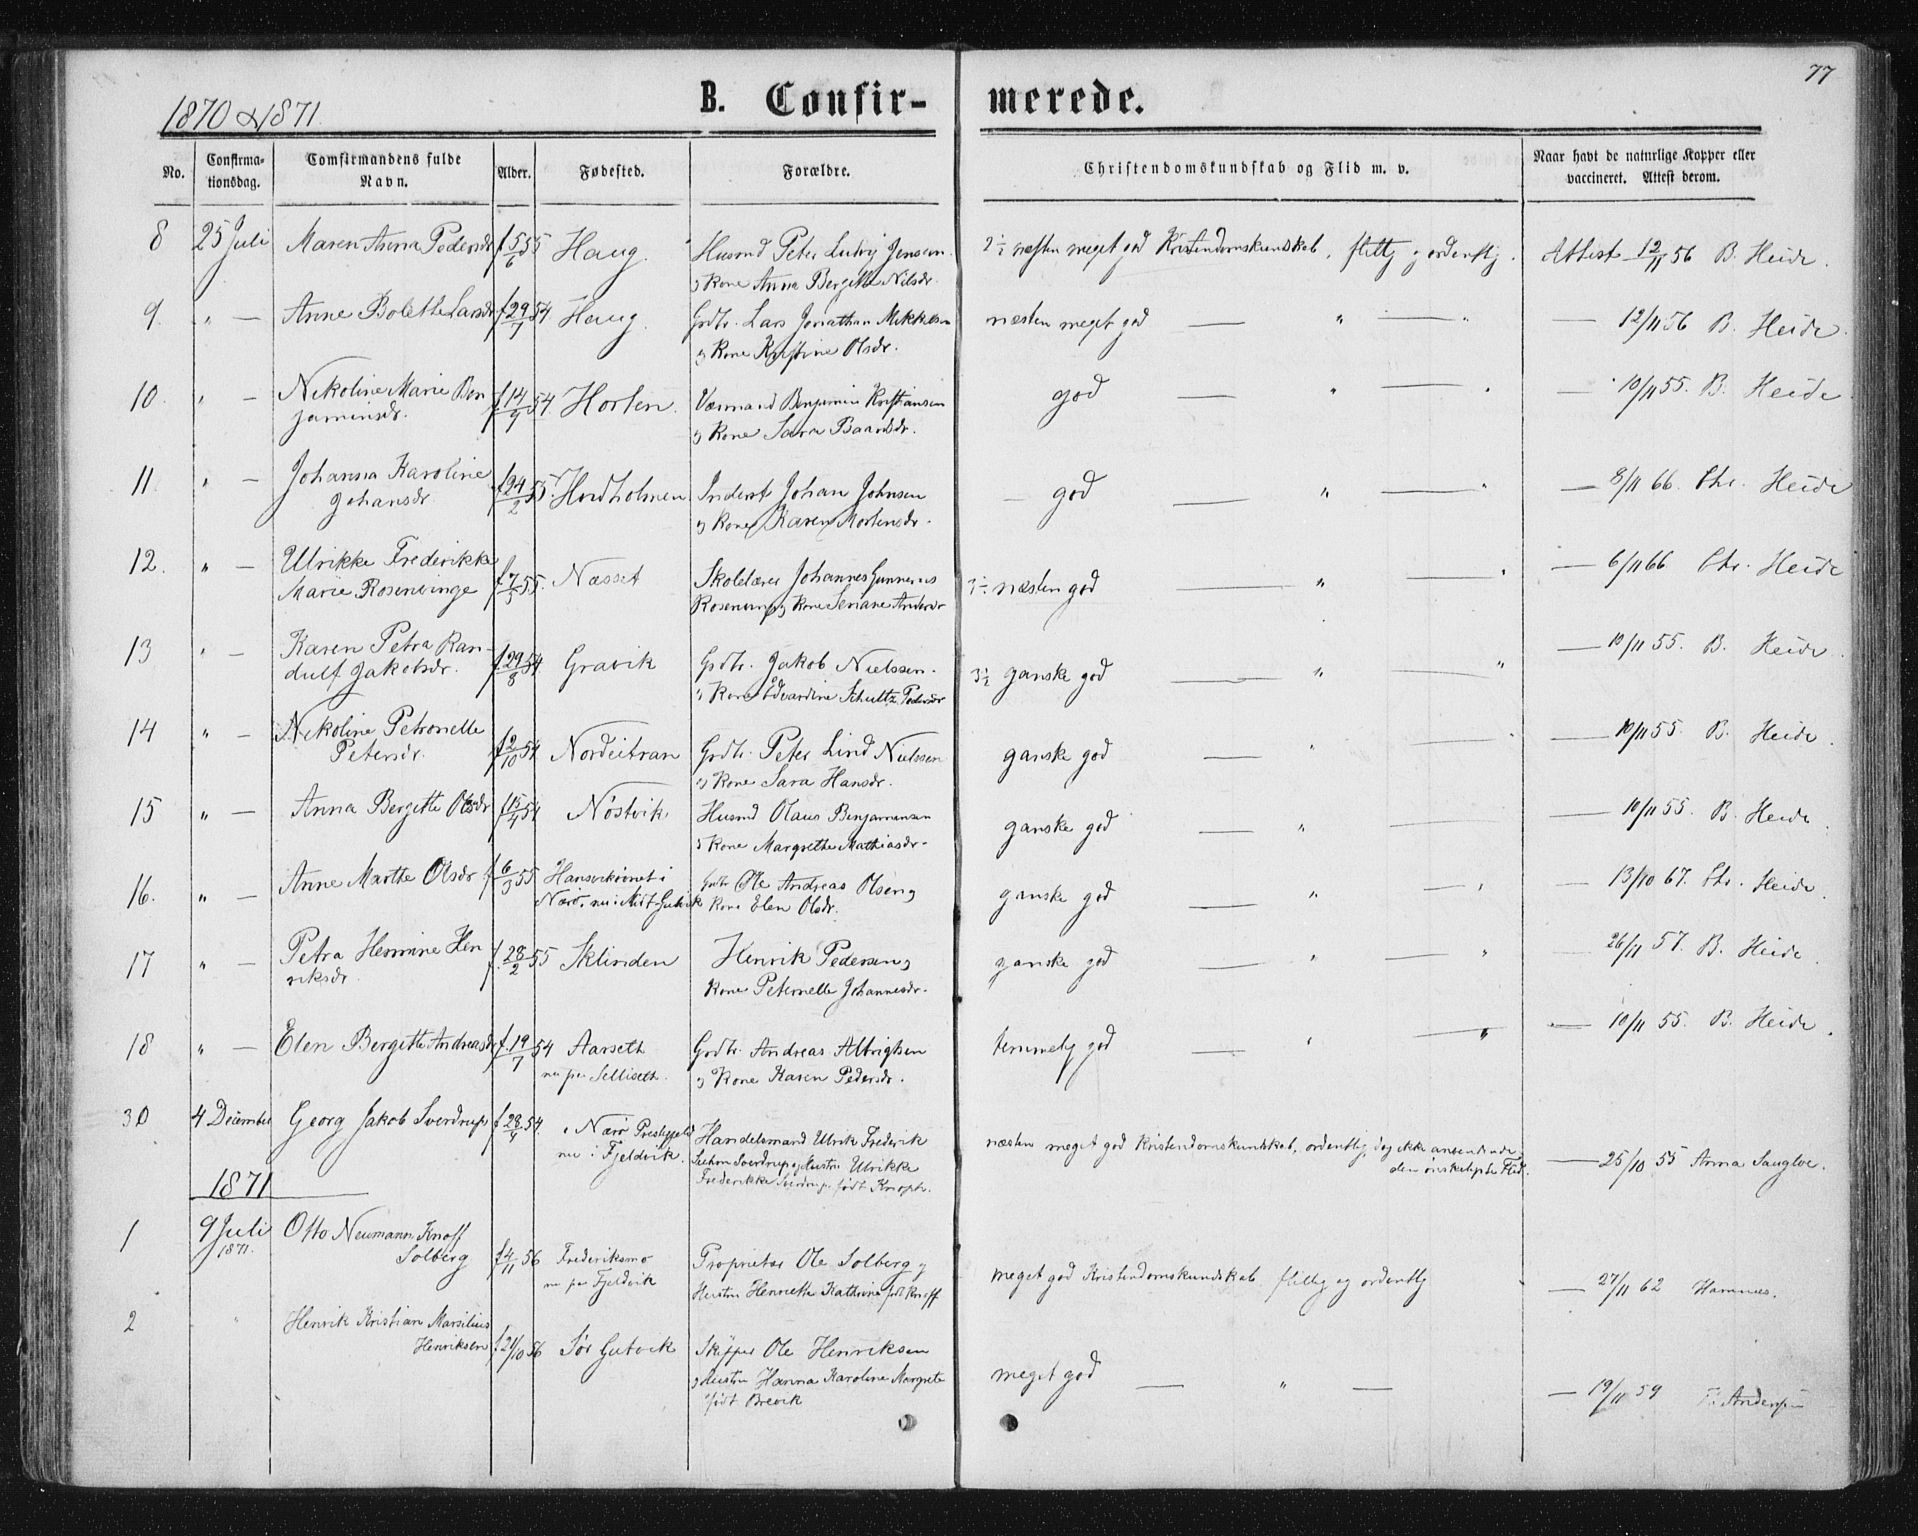 77
1870 & 1871.
B. Confirmerede.
No. Confirmationsdag. Comfirmandens fulde Navn. Alder. Fødested. Forældre. Christendomskundskab og Flid m. v. Naar havt de naturlige Kopper eller vaccineret. Attest derom.
8 25 Juli Maren Anna Pedersdr f. 5/6 55 Haug. Husmd Peter Ludvig Jensen
Kone Anna Bergitte Nilsdr. næsten meget god Kristendomskundskab, flittig og ordentlig. Attest 12/11 56 B. Heide.
9. " — Anne Bolette Larsdr f. 29/7 54 Haug. Grdbr. Lars Jonathan Mikkelsen
Kone Kristine Olsdr. næsten meget god — " — " — 12/11 56 B. Heide.
10. " — Nikoline Marie Ben
jaminsdr. f. 14/9 54. Horten. Benjamin Kristiansen
Kone Sara Baardsdr. god — " — " — 10/11 55. B. Heide
11. " — Johanna Karoline
Johansdr. f. 24/2 55. Inderst Johan Johnsen
Kone Karen Mortensdr. god — " — " — 8/11 66. Chr. Heide
12. " — Ulrikke Frederikke
Marie Rosenvinge f. 7/3 55. Næsset Skolelærer Johannes Gunnerus
Rosenvinge Kone Andersdr næsten god — " — " — 6/11 66 Chr. Heide
13 " — Karen Petra Ran-
dulf Jakobsdr. f. 29/8 54 Gravik Grdbr. Jakob Nielssen.
Kone Edvardine Schultz Pedersdr 3½ ganske god — " — " — 10/11 55. B. Heide.
14 " — Nikoline Petronelle
Petersdr. f. 2/10 54 Grdbr. Peter Lind Nielssen
Kone Sara Hansdr. ganske god — " — " — 10/11 55 B. Heide.
15 " — Anna Bergitte Olsdr f. 15/4 54 Nøstvik Husmd Olaus Benjaminsen
Kone Margrethe Mathiasdr. ganske god — " — 10/11 55. B. Heide.
16. " — Anne Marthe Olsdr f. 6/3 55 i
Nærö, nu i Gutvik Grdbr Ole Andreas Olsen
Kone Elen Olsdr. ganske god — " — " — 13/10 67. Chr. Heide.
17 " — Petra Hermine Hen
riksdr. f. 28/2 55 Sklinden Henrik Pedersen
Kone Peternelle Johannesdr. ganske god — " — " 26/11 57. B. Heide.
18 " — Elen Bergitte Andreasdr f. 19/7 54 Aarseth
nu paa Selliseth. Grdbr. Andreas Albrigtsen
Kone Karen Pedersdr. temmelig god — " — " — 10/11 55. B. Heide.
30 4 December Georg Jakob Sverdrup f. 28/4 54. Nærö Prestegjeld
nu i Fjeldvik. Handelsmand Ulrik Frederik
Sverdrup og Hustru Ulrikke
Frederikke Sverdrup født Knoph. næsten meget god Kristendomskundskab, ordentlig, dog ikke anvendende
den ønskeligste Flid. — 25/10 55 Anna
1871
1 9 Juli
1871. Otto Neumann Knoff
Solberg f. 4/11 56 Frederiksmo
nu paa Fjeldvik Proprietær Ole Solberg
Hustru Henriette Kathrine født Knoff meget god Kristendomskundskab flittig og ordentlig — 27/11 62 Hamnes.
2 " Henrik Kristian Marsilius
Henriksen f. 21/10 56 Sör Gutvik Skipper Ole Henriksen
Hustru Hanna Karoline Margrete
født Brevik meget god — " — — 19/11 59 Andersen